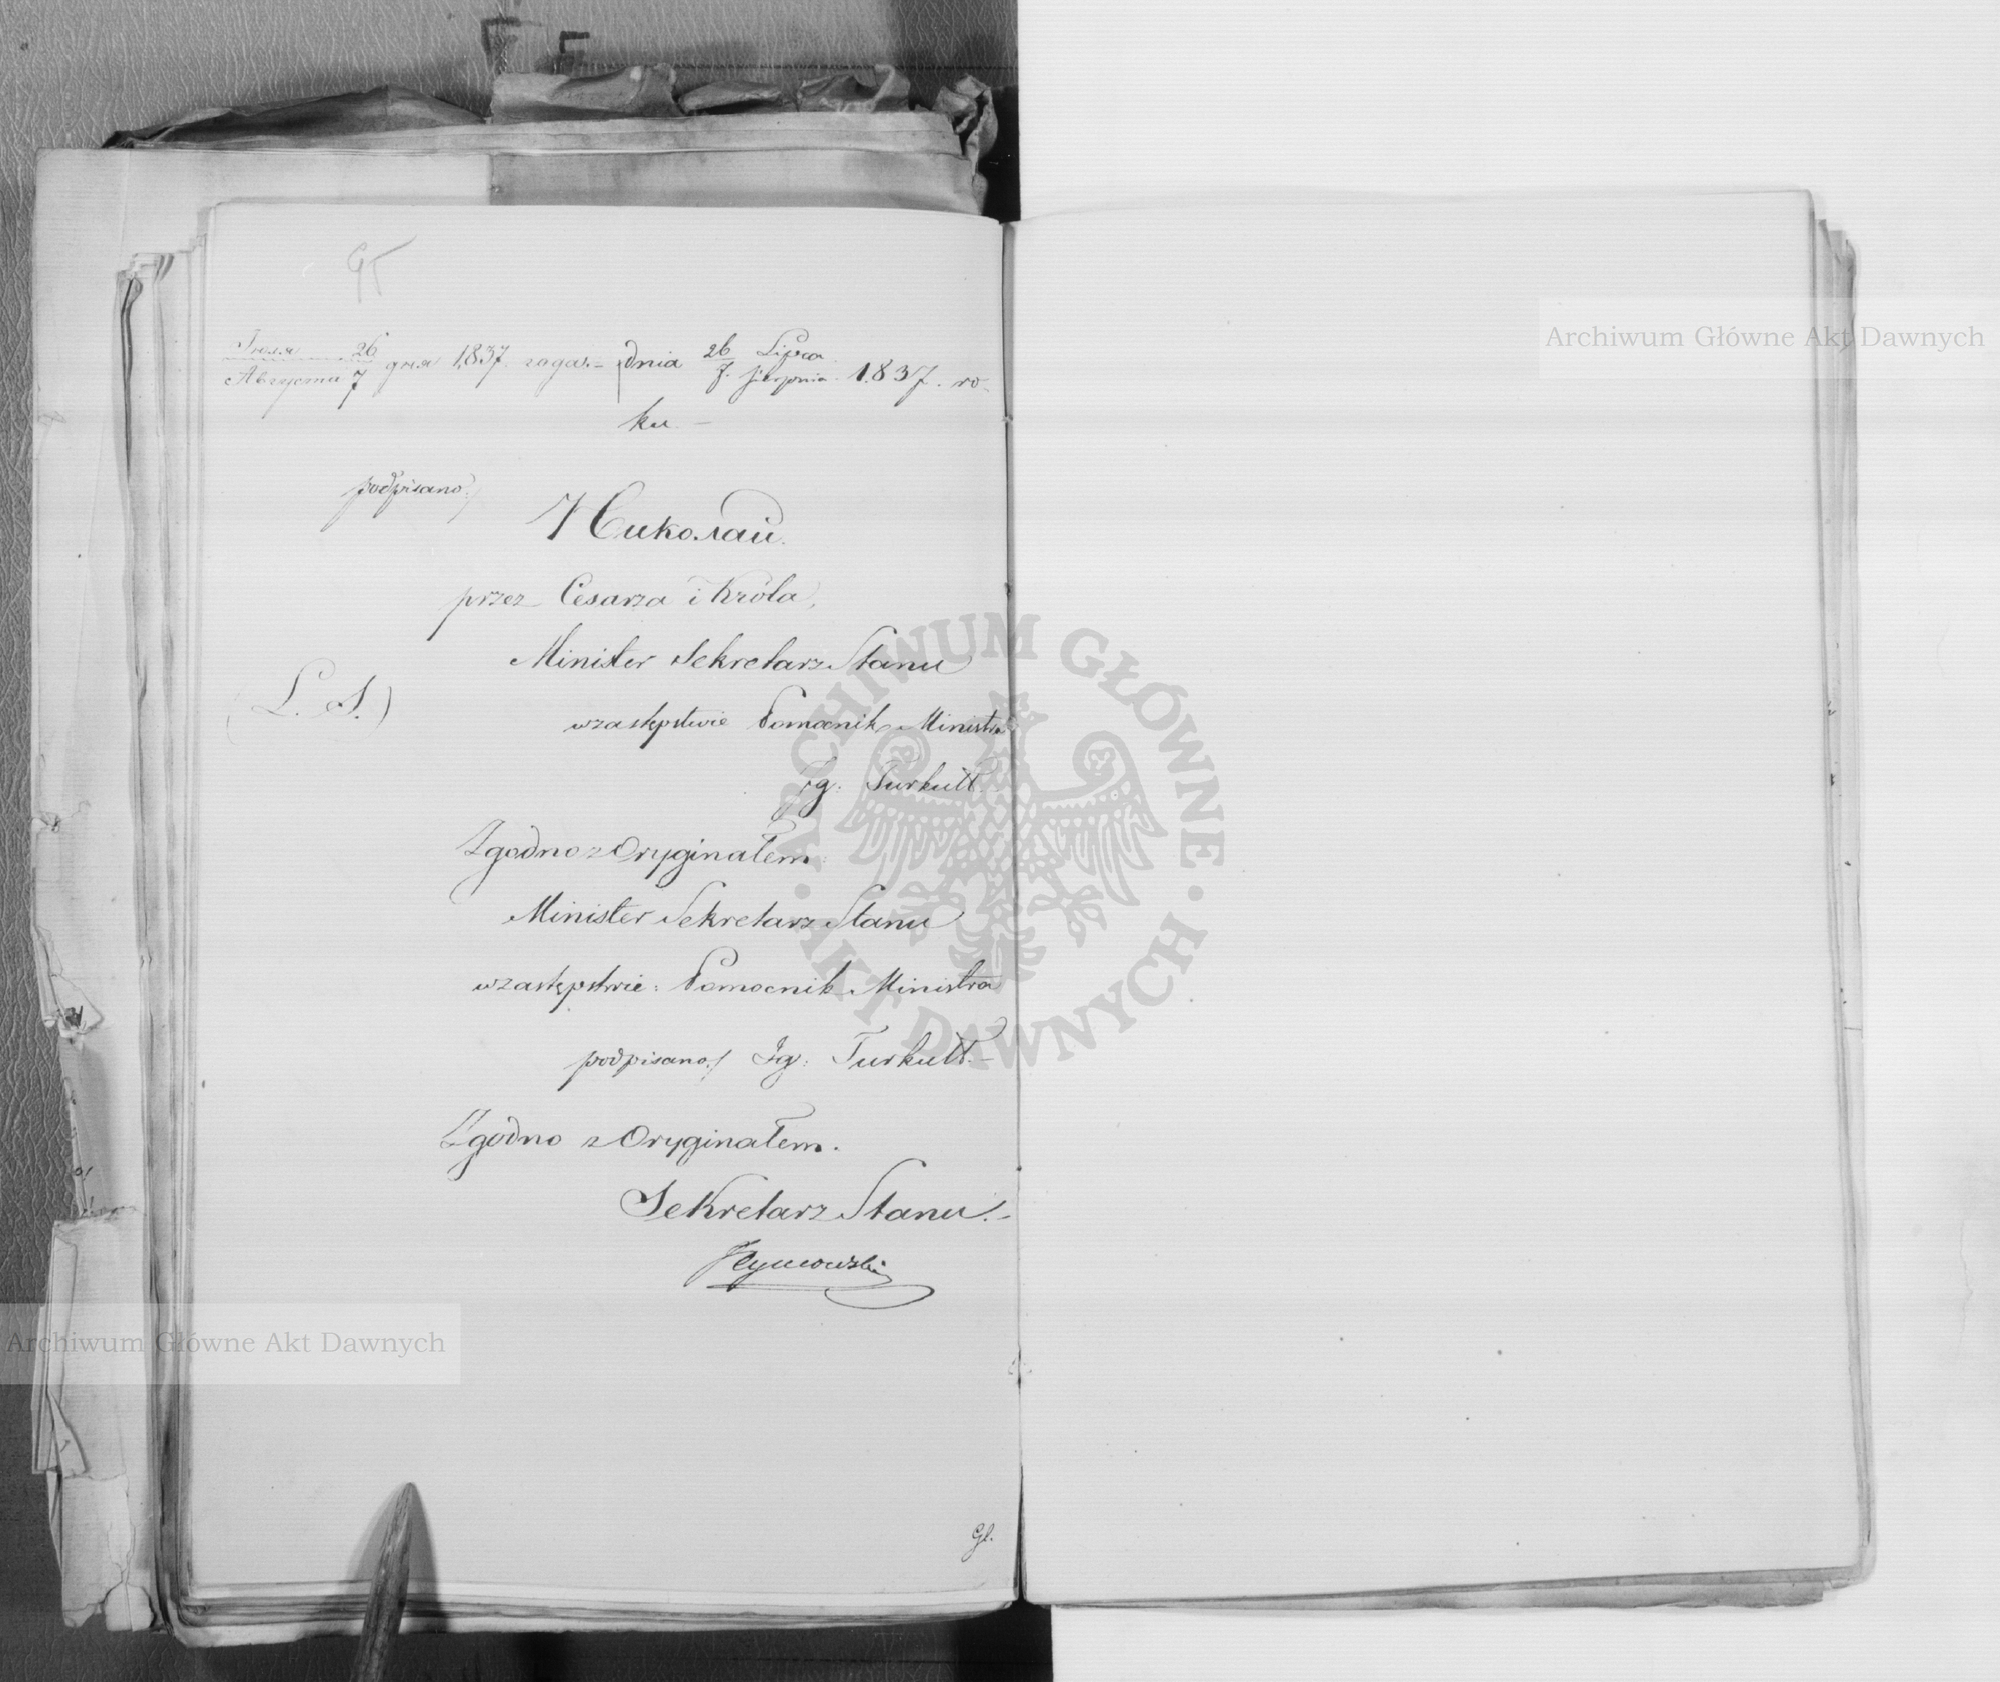 95
Іюля 26
Августа 7 дня 1837. года. —
dnia 26 Lipca
7. Sierpnia 1837. ro-
ku. —
podpisano:/
Николай.
przez Cesarza i Króla,
Minister Sekretarz Stanu
(L. S.)
w zastępstwie Pomocnik Ministra
Ig: Turkułł.
Zgodno z Oryginałem:
Minister Sekretarz Stanu
w zastępstwie: Pomocnik Ministra
podpisano:/ Ig: Turkułł. —
Zgodno z Oryginałem.
Sekretarz Stanu. —
Tymowski
Gł.
Archiwum Główne Akt Dawnych
Archiwum Główne Akt Dawnych
ARCHIWUM GŁÓWNE · AKT DAWNYCH ·